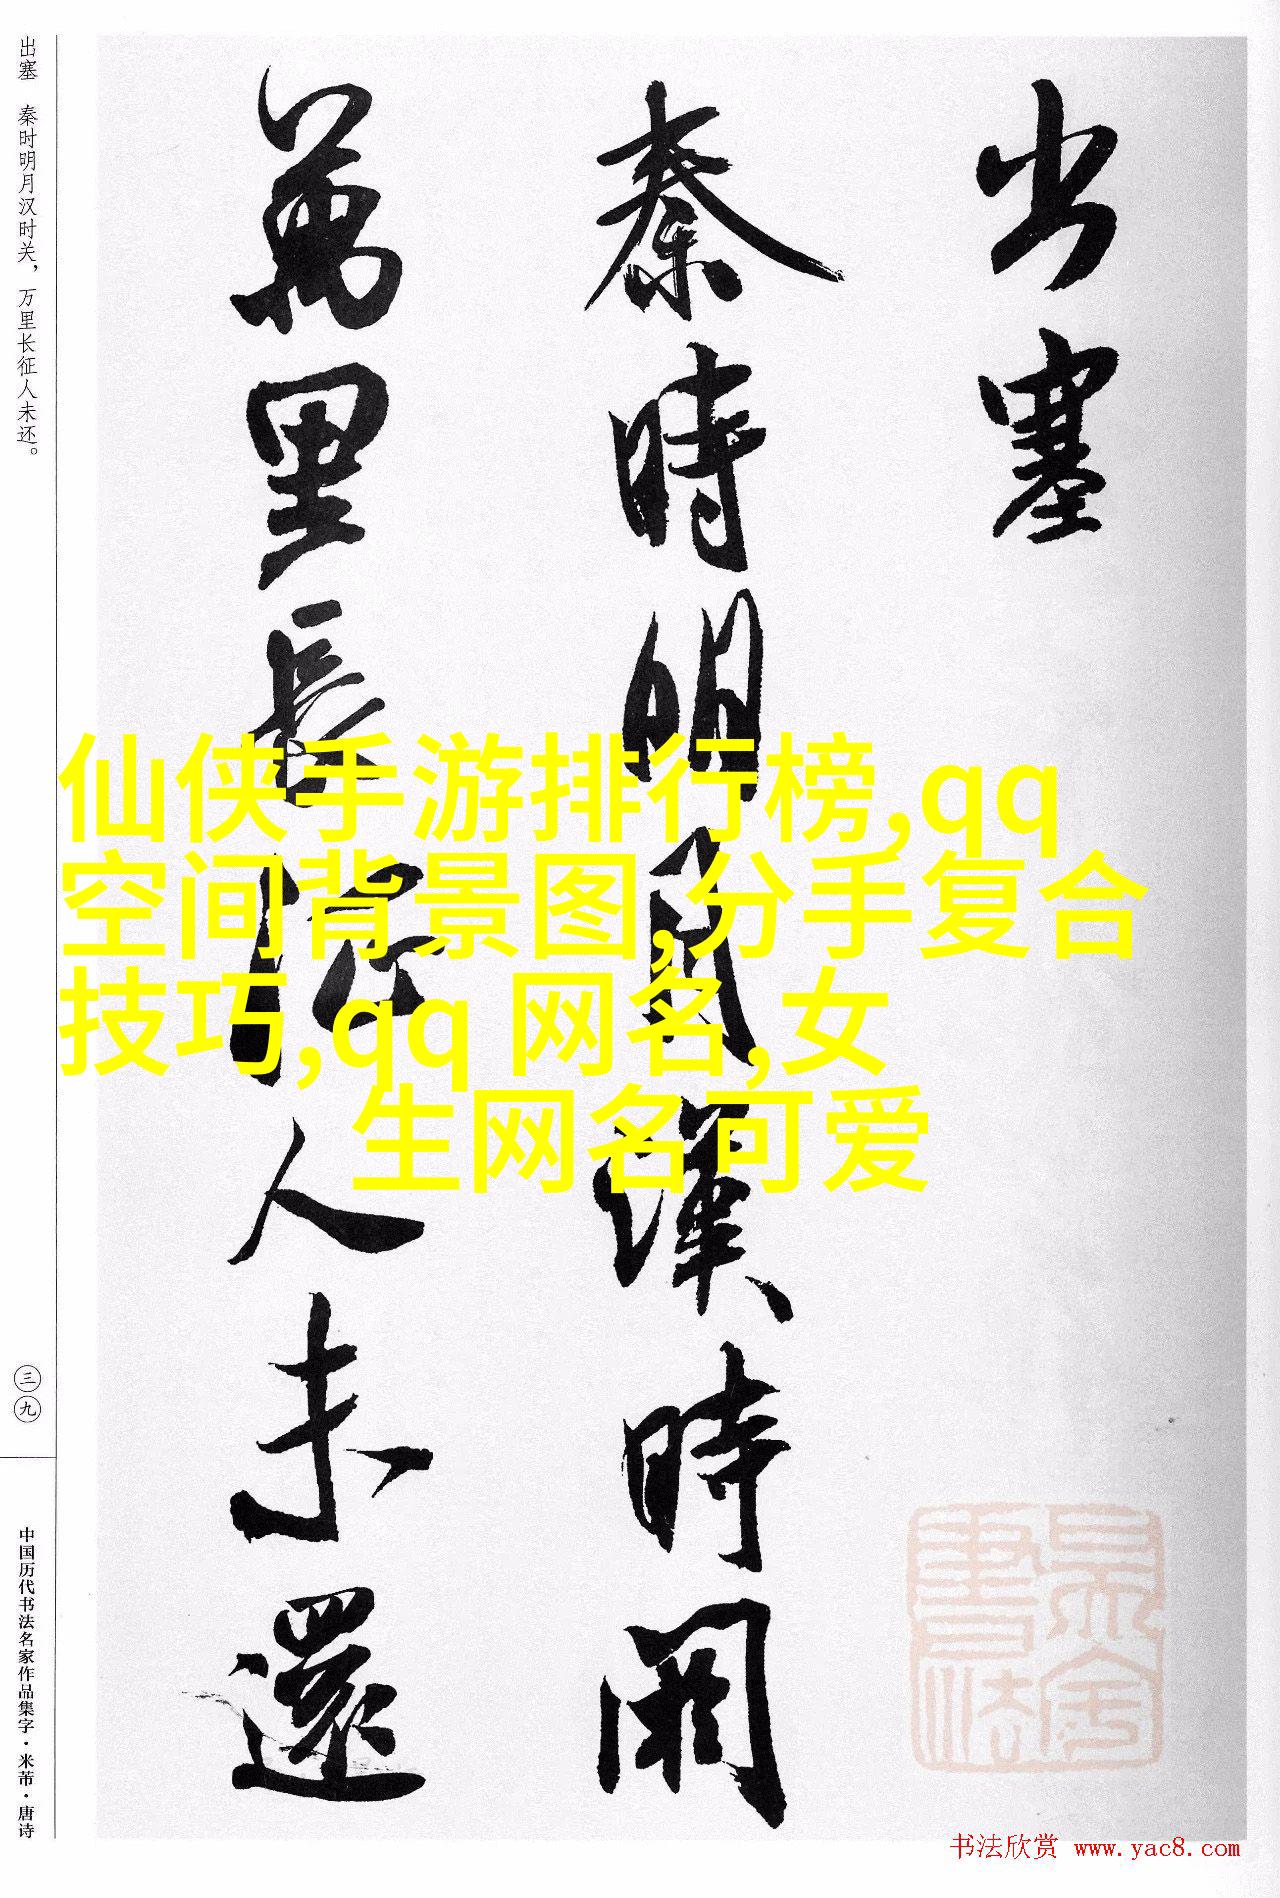 出塞
秦時明月漢時關
萬里長征人未還
出塞 秦时明月汉时关，万里长征人未还。
三九
中国历代书法名家作品集字·米芾·唐诗
仙侠手游排行榜,qq
空间背景图,分手复合
技巧,qq 网名,女
生网名可爱
书法欣赏 www.yac8.com